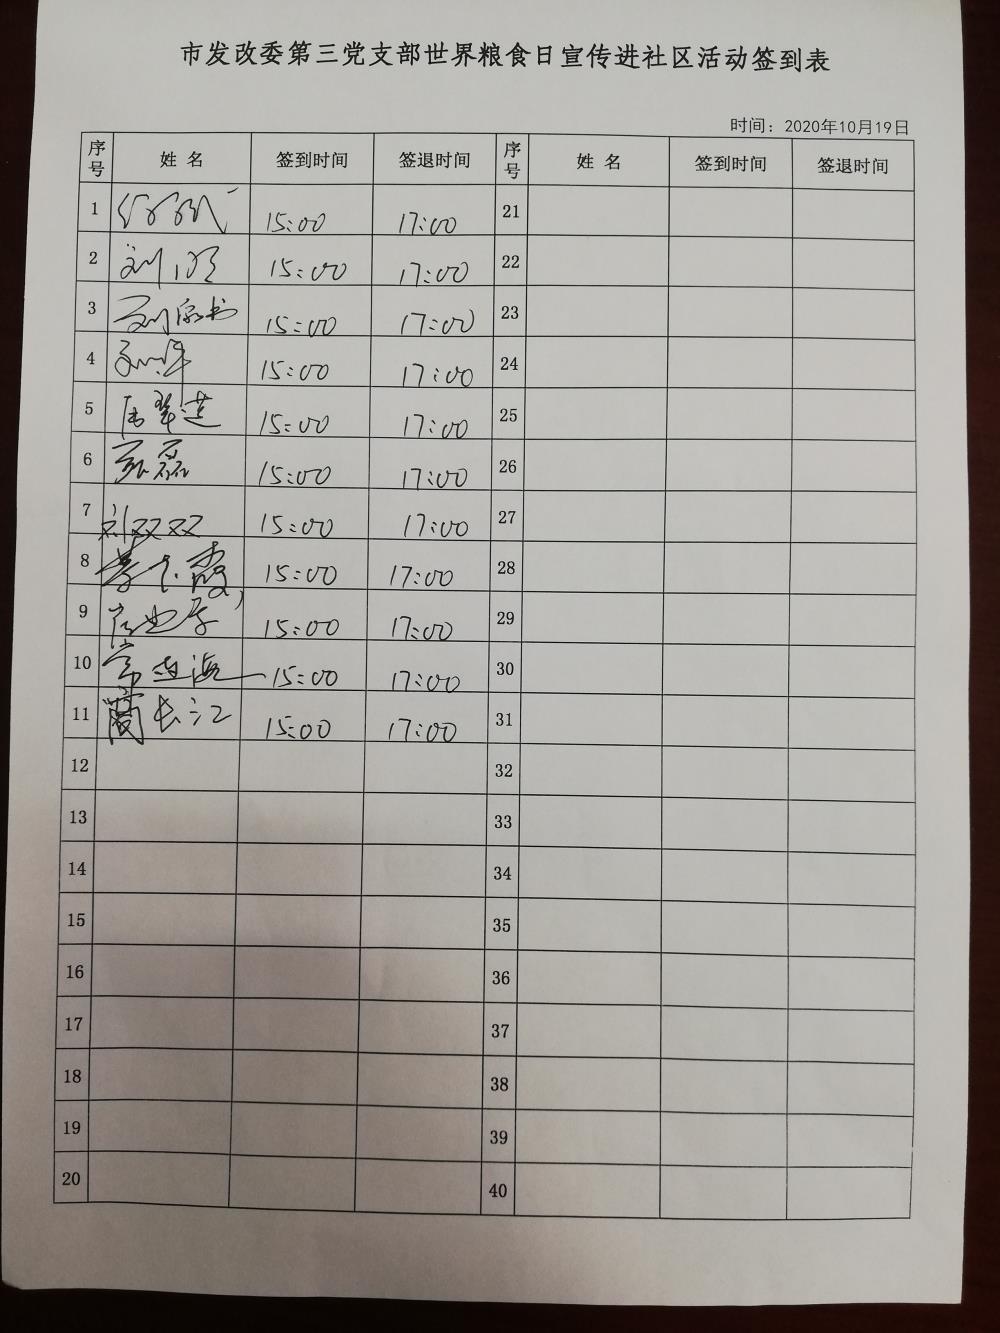 市发改委第三党支部世界粮食日宣传进社区活动签到表
时间：2020年10月19日
序号 姓 名 签到时间 签退时间 序号 姓 名 签到时间 签退时间
1 15:00 17:00 21
2 刘 15:00 17:00 22
3 刘 15:00 17:00 23
4 15:00 17:00 24
5 15:00 17:00 25
6 磊 15:00 17:00 26
7 刘双双 15:00 17:00 27
8 霞 15:00 17:00 28
9 15:00 17:00 29
10 常 15:00 17:00 30
11 蔺长江 15:00 17:00 31
12 32
13 33
14 34
15 35
16 36
17 37
18 38
19 39
20 40